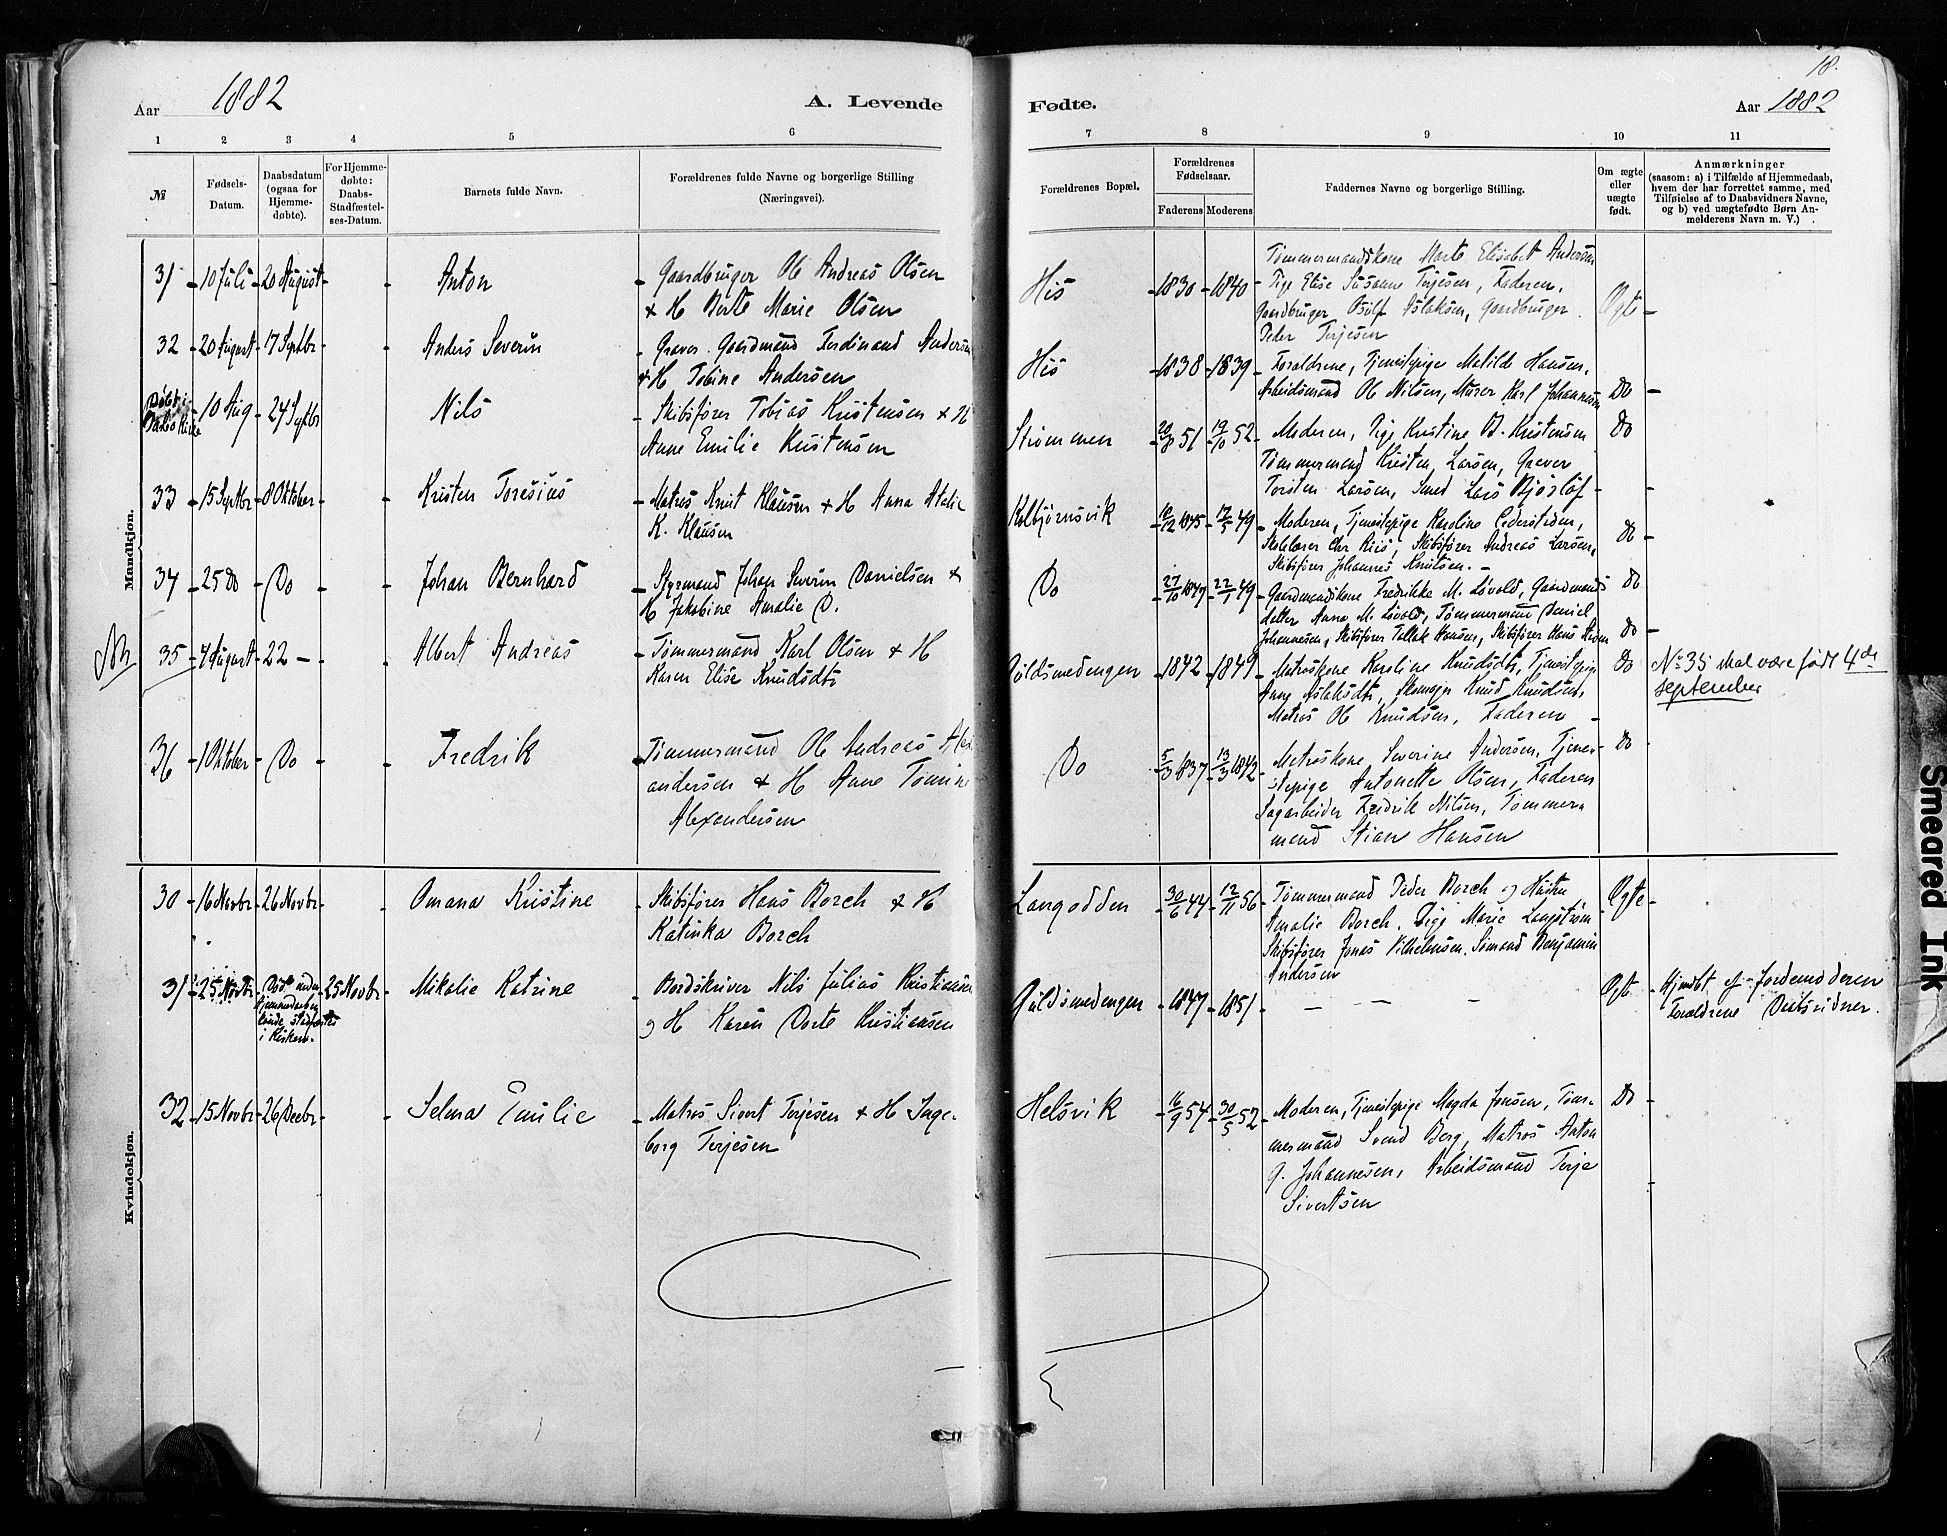 Aar 1882
A. Levende
1 2 3 4 5 6
№
Fødsels-Datum.
Daabsdatum (ogsaa for Hjemme-døbte).
For Hjemme-døbte: Daabs-Stadfæstel-ses-Datum.
Barnets fulde Navn.
Forældrenes fulde Navne og borgerlige Stilling
(Næringsvei).
Mandkjøn.
31 10 Juli 20 August Anton Gaardbruger Ole Andreas Olsen
& H Berte Marie Olsen
32 20 August 17 Septbr Anders Severin Graver Gaardmand Ferdinand Andersen
& H Tobine Andersen
Døbt i
Kirke
10 Aug 24 Septbr Nils Skibsfører Tobias Kristensen & H
Anne Emilie Kristensen
33 15 Septbr 8 Oktober Kristen Toresius Matros Knut Klausen & H Anna Atalie
K. Klausen
34 25 Do Do Johan Bernhard Styrmand Johan Severin Danielsen &
H Jakobine Amalie D.
NB
35 4 August 22 — Albert Andreas Tømmermand Karl Olsen & H
Karen Elise Knudsdtr
36 1 Oktober Do Fredrik Tømmermand Ole Andreas Alex
andersen & H Anne Tomine
Alexandersen
Kvindekjøn.
30 16 Novbr 26 Novbr Omana Kristine Skibsfører Hans Borch & H
Katinka Borch
31 25 Novbr 25 Novbr Mikalie Katrine Bordskriver Nils Julius Kristiansen
i Kirken.
og H Karen Dorte Kristiansen
32 15 Novbr 26 Decbr Selma Emilie Matros Sivert Terjesen & H Inge-
borg Terjesen
Fødte.
18.
Aar 1882
7 8 9 10 11
Forældrenes Bopæl.
Forældrenes Fødselsaar.
Faderens Moderens
Faddernes Navne og borgerlige Stilling.
Om ægte eller uægte født.
Anmærkninger
(saasom: a) i Tilfælde af Hjemmedaab,
hvem der har forrettet samme, med
Tilføielse af to Daabsvidners Navne,
og b) ved uægtefødte Børn An-
melderens Navn m. V.)
His 1830 1840 Tømmermandskone Marte Elisabet Andersen
Pige Elise Susanne Terjesen, Faderen,
Gaardbruger Osulf Aslaksen, Gaardbruger Ægte
Peder Terjesen
His 1838 1839 Forældrene, Tjenestepige Matilde Hansen,
Arbeidsmand Ole Nilsen, Murer Karl Johannesen Do
Strømmen 20/8 51 19/10 52 Moderen, Pige Kristine B. Kristensen Do
Tømmermand Kristen Larsen, Graver
Torsten Larsen, Smed Lars
Kolbjørnsvik 10/12 1845 17/5 49 Moderen, Tjenestepige Karoline
Skolelærer Chr Riis, Skibsfører Andreas Larsen, Do
Skibsfører Johannes Knutsen.
Do 27/10 1847 22/1 49 Gaardmandskone Fredrikke M. Løvold, Gaardmands Do
datter Anna M. Løvold, Tømmermand Daniel
Johannesen, Skibsfører Tellak Hansen, Skibsfører Hans Do
Guldsmedengen 1842 1849 Matroskone Karoline Knudsdtr, Tjenestepige Do
Anne Aslaksdtr, Skomager Knud Knudsen,
Matros Ole Knudsen, Faderen
No 35 skal være født 4de
september
Do 5/3 1837 13/3 1842 Matroskone Severine Andersen, Tjene- Do
stepige Antonette Olsen, Faderen
Sagarbeider Fredrik Nilsen, Tømmer
mand Stian Hansen
Langodden 30/6 44 12/11 56 Tømmermand Peder Borch og Hustru Ægte
Amalie Borch, Pige Marie Langstrøm
Skibsfører Jonas Vilhelmsen, Sømand Benjamin
Andersen
Guldsmedengen 1847 1851 — — — Ægte Hjmdbt af Jordemoderen
Forældrene Daabsvidner.
Helsvik 16/9 54 30/5 52 Moderen, Tjenestepige Magda Jensen, Tøm- Do
mermand Svend Berg, Matros Anton
G. Johannesen, Arbeidsmand Terje
Sivertsen
Smeared Ink